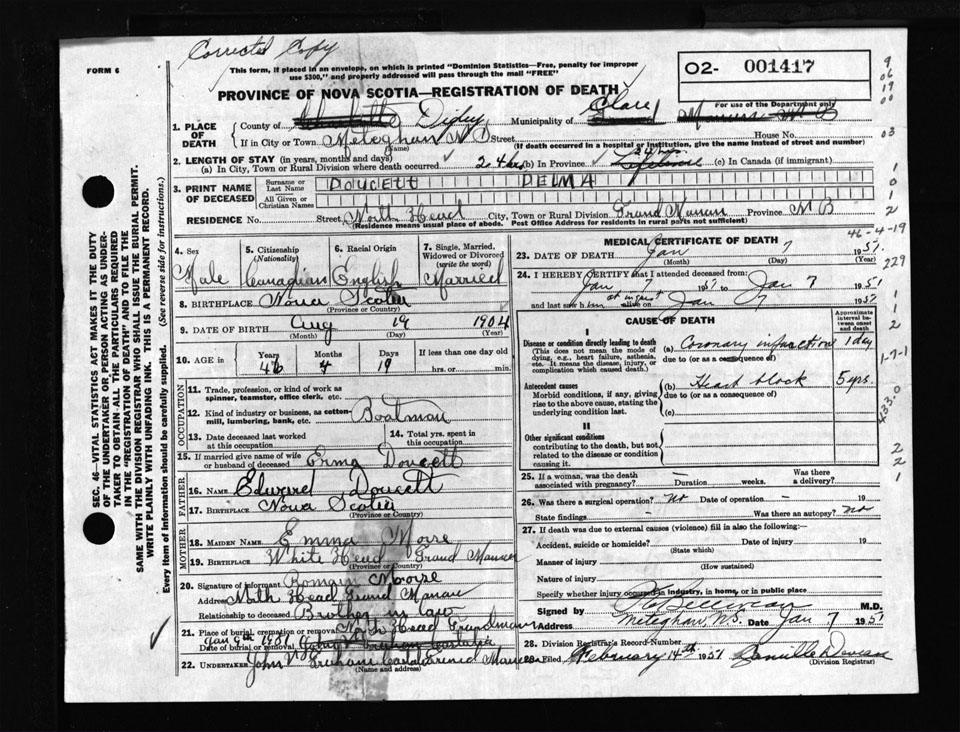 Corrected Copy
FORM 6
This form, if placed in an envelope, on which is printed "Dominion Statistics—Free, penalty for improper
use $300," and properly addressed will pass through the mail "FREE"
02- 001417
PROVINCE OF NOVA SCOTIA—REGISTRATION OF DEATH
For use of the Department only
1. PLACE OF DEATH
County of Digby Municipality of Clare
If in City or Town Meteghan N S Street House No.
(Name) (If death occurred in a hospital or institution, give the name instead of street and number)
2. LENGTH OF STAY (in years, months and days)
(a) In City, Town or Rural Division where death occurred 24 hrs (b) In Province 24 hrs (c) In Canada (if immigrant)
3. PRINT NAME OF DECEASED
Surname or Last Name DOUCETT DELMA
All Given or Christian Names
RESIDENCE No. Street, North Head City, Town or Rural Division Grand Manan Province N B
(Residence means usual place of abode. Post Office Address for residents in rural parts not sufficient)
4. Sex Male
5. Citizenship (Nationality) Canadian
6. Racial Origin English
7. Single, Married, Widowed or Divorced (write the word) Married
8. BIRTHPLACE Nova Scotia
(Province or Country)
9. DATE OF BIRTH Aug 19 1904
(Month) (Day) (Year)
10. AGE in Years Months Days If less than one day old
46 4 19 hrs. or min.
OCCUPATION
11. Trade, profession, or kind of work as
spinner, teamster, office clerk, etc.
12. Kind of industry or business, as cotten-
mill, lumbering, bank, etc. Boatman
13. Date deceased last worked
at this occupation
14. Total yrs. spent in
this occupation
15. If married give name of wife
or husband of deceased Erma Doucett
FATHER
16. NAME Edward Doucett
17. BIRTHPLACE Nova Scotia
(Province or Country)
MOTHER
18. MAIDEN NAME Emma Morse
19. BIRTHPLACE White Head Grand Manan
(Province or Country)
20. Signature of informant Romain Moore
Address North Head Grand Manan
Relationship to deceased Brother in law
21. Place of burial, cremation or removal North Head Grand Manan
Date of burial or removal Jan 9th 1951
22. UNDERTAKER John
(Name and address)
MEDICAL CERTIFICATE OF DEATH
23. DATE OF DEATH Jan 7 1951
(Month) (Day) (Year)
24. I HEREBY CERTIFY that I attended deceased from:
Jan 7 1951 to Jan 7 1951
and last saw him alive on Jan 7 1951
CAUSE OF DEATH
Approximate interval between onset and death
I
Disease or condition directly leading to death
(This does not mean the mode of dying, e.g., heart failure, asthenia, etc. It means the disease, injury, or complication which caused death.)
(a) Coronary infarction 1 day
due to (or as a consequence of)
Antecedent causes
Morbid conditions, if any, giving rise to the above cause, stating the underlying condition last.
(b) Heart block 5 yrs.
due to (or as a consequence of)
(c)
II
Other significant conditions
contributing to the death, but not related to the disease or condition causing it.
25. If a woman, was the death Was there
associated with pregnancy? Duration weeks. a delivery?
26. Was there a surgical operation? No Date of operation 19
State findings Was there an autopsy? No
27. If death was due to external causes (violence) fill in also the following:—
Accident, suicide or homicide? Date of injury 19
(State which)
Manner of injury
(How sustained)
Nature of injury
Specify whether injury occurred in industry, in home, or in public place
Signed by M.D.
Meteghan, N.S. Date Jan 7 1951
28. Division Registrar's Record Number
Filed February 14th 1951
(Division Registrar)
SEC. 46—VITAL STATISTICS ACT MAKES IT THE DUTY
OF THE UNDERTAKER OR PERSON ACTING AS UNDER-
TAKER TO OBTAIN ALL THE PARTICULARS REQUIRED
IN THE "REGISTRATION OF DEATH" AND TO FILE THE
SAME WITH THE DIVISION REGISTRAR WHO SHALL ISSUE THE BURIAL PERMIT.
WRITE PLAINLY WITH UNFADING INK. THIS IS A PERMANENT RECORD.
Every item of information should be carefully supplied. (See reverse for instructions.)
46-4-19
229